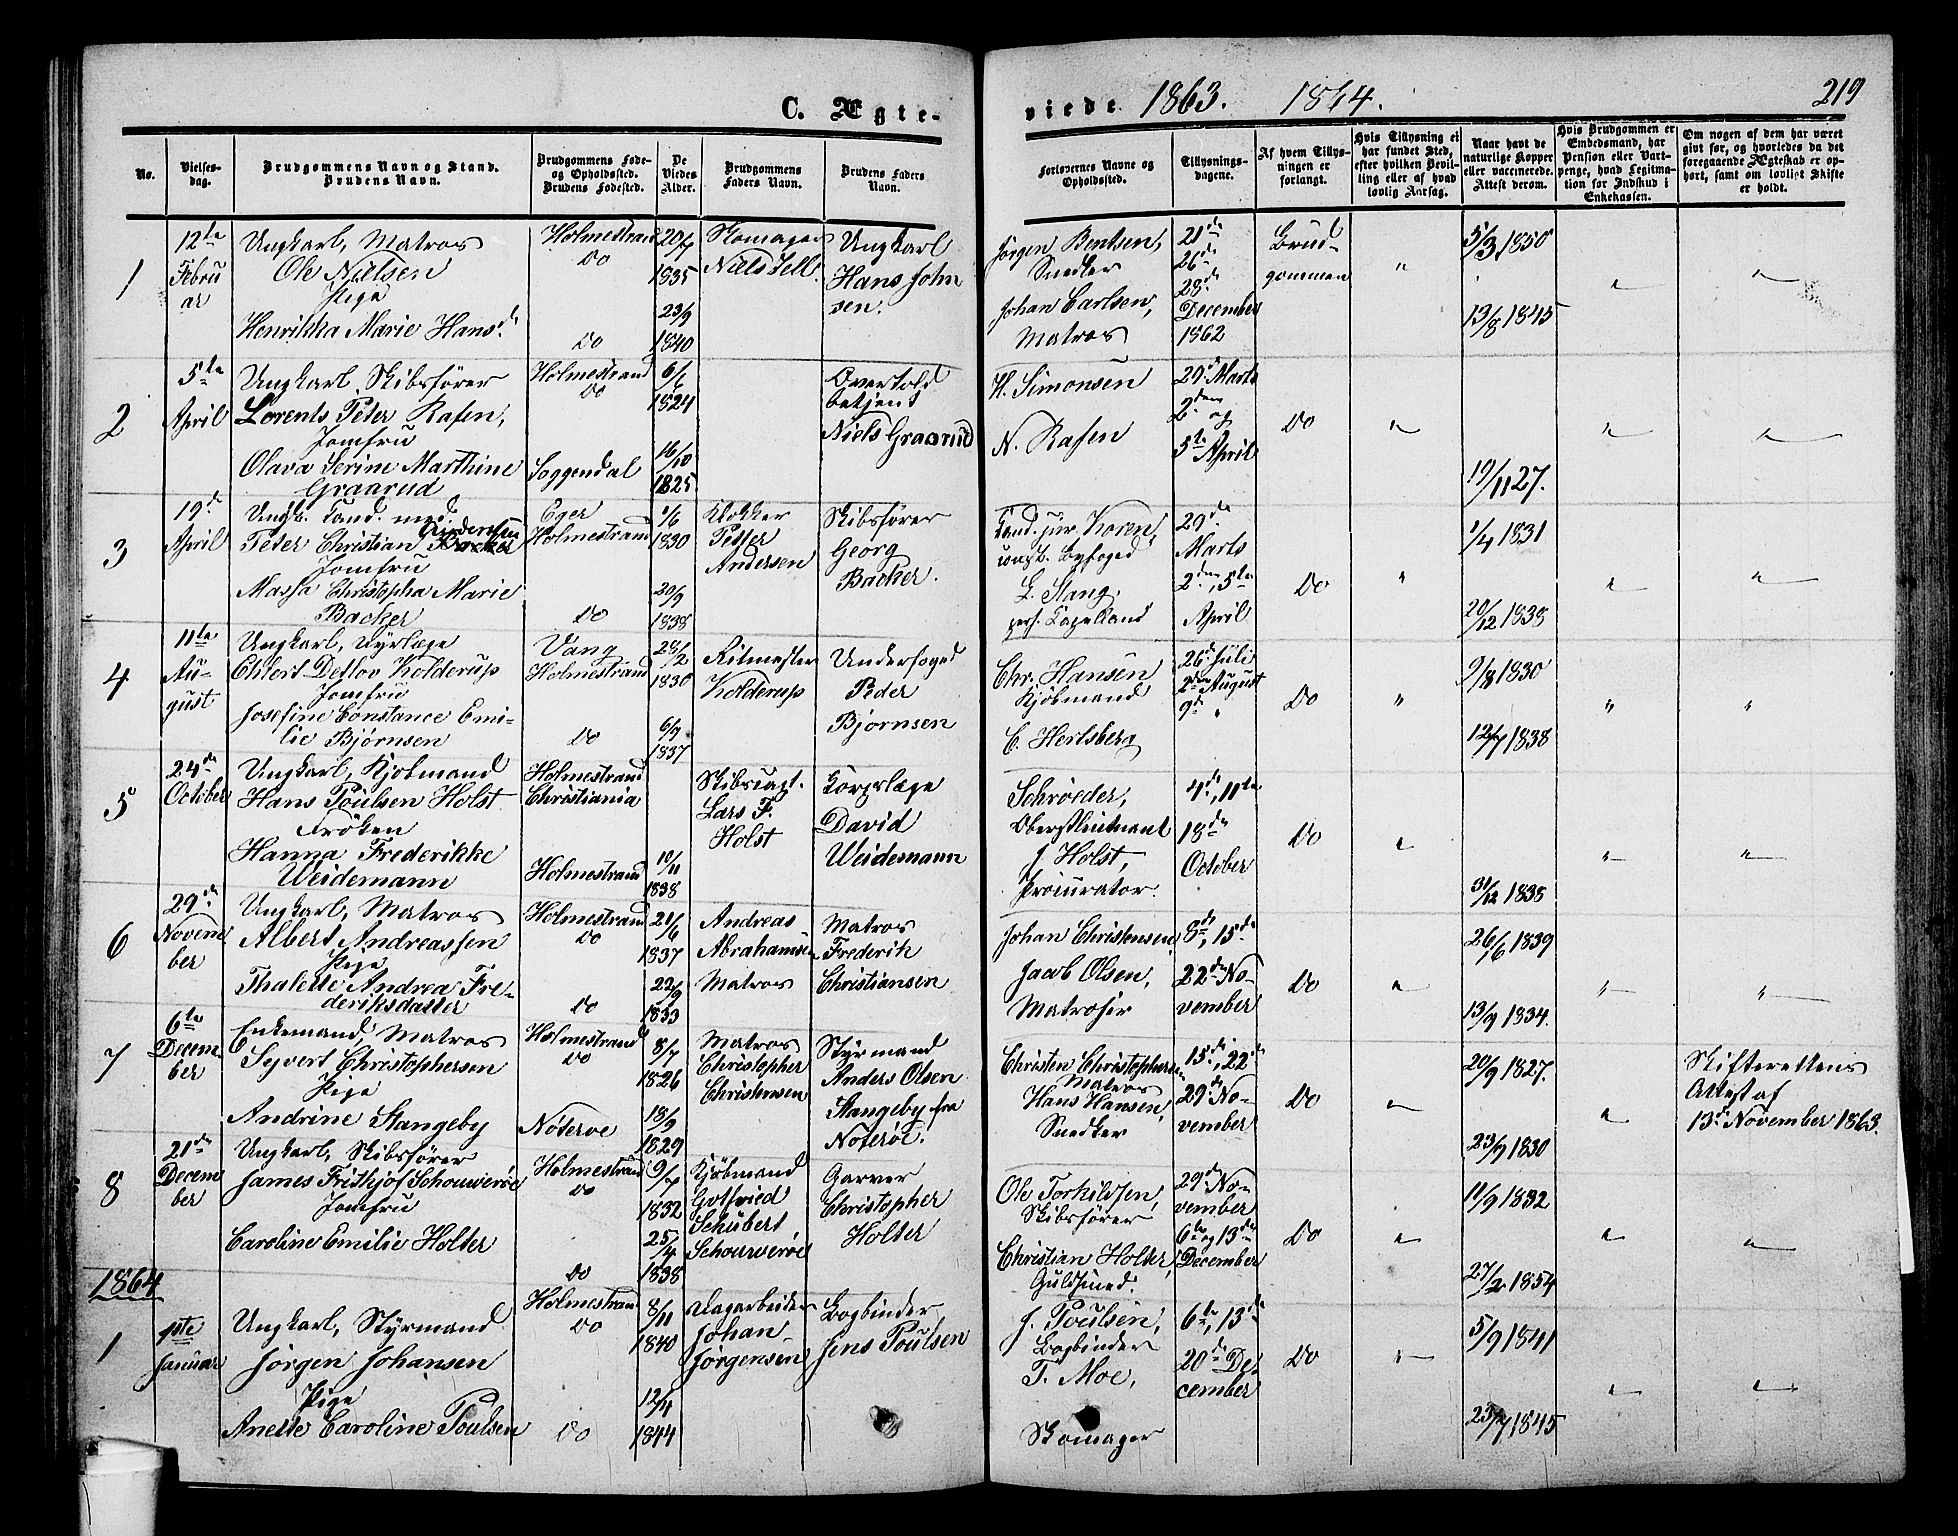 C. Ægte-
viede 1863. 1864. 219
No.
Vielses-
dag.
Brudgommens Navn og Stand.
Brudens Navn.
Brudgommens Føde-
og Opholdssted.
Brudens Fødested.
De
Viedes
Alder.
Brudgommens
Faders Navn.
Brudens Faders
Navn.
Forlovernes Navne og
Opholdssted.
Tillysnings-
dagene.
Af hvem Tillys-
ningen er
forlangt.
Hvis Tillysning ei
har fundet Sted,
efter hvilken Bevil-
ling eller af hvad
lovlig Aarsag.
Naar havt de
naturlige Kopper
eller vaccinerede.
Attest derom.
Hvis Brudgommen er
Embedsmand, har
Pension eller Vart-
penge, hvad Legitima-
tion for Indskud i
Enkekassen.
Om nogen af dem har været
givt før, og hvorledes da det
foregaaende Ægteskab er op-
hørt, samt om lovligt Skifte
er holdt.
1
12te
Febru
ar
Ungkarl, Matros
Ole Nielsen
Pige
Henrikka Marie Hansd.
Holmestrand
Do
Do
20/7
1835
23/9
1840
Skomager
Niels
Ungkarl
Hans John
sen.
Jørgen Bentsen,
Snedker
Johan Carlsen,
Matros
21de
26de
28de
December
1862
Brud-
gommen
"
5/3 1850
13/8 1845
"
"
2
5te
April
Ungkarl, Skibsfører
Lorents Peter Rasen,
Jomfru
Olava Serine Marthine
Graarud
Holmestrand
Do
Soggendal
6/6
1824
16/10
1825
Overtold
betjent
Niels Graarud
H. Simonsen
N. Rasen
29de Marts
2den og
5te April
Do
"
19/11 27.
"
"
3
19de
April
Ungk. Cand. med.
Peter Christian Andersen
Jomfru
Massa Christopha Marie
Backer
Eger
Holmestrand
Do
1/6
1830
20/9
1838
Klokker
Petter
Andersen
Skibsfører
Georg
Backer.
Cand. jur. Koren,
const. Byfoged
L. Stang,
pers. Capelland
29de
Marts
2den, 5te
April
Do
"
1/4 1831
20/12 1838
"
"
4
11te
Au-
gust
Ungkarl, Dyrlæge
Ehlert Detlov Kolderup
Jomfru
Josefine Constance Emi-
lie Bjørnsen
Vang
Holmestrand
Do
28/2
1830
6/9
1837
Ritmester
Kolderup
Underfoged
Peder
Bjørnsen
Chr. Hansen
Kjøbmand
C. Hertsberg
26de Juli
2den August
9de "
Do
"
9/8 1830
12/7 1838
"
"
5
24de
October
Ungkarl, Kjøbmand
Hans Poulsen Holst
Frøken
Hanna Frederikke
Weidemann
Holmestrand
Christiania
Holmestrand
10/11
1838
Skibscapt.
Lars F.
Holst
Korpslæge
David
Weidemann
Schrøeder,
Oberstlieutnant
J. Holst,
Procurator.
4de, 11te
18de
October
Do
"
31/12 1838
"
"
6
29de
Novem
ber
Ungkarl, Matros
Albert Andreassen
Pige
Thalette Andrea Fre-
deriksdatter
Holmestrand
Do
Do
21/6
1837
22/9
1833
Andreas
Abrahamsen
Matros
Matros
Frederik
Christiansen
Johan Christensen
Jacob Olsen,
Matroser
8de, 15de
22de No-
vember
Do
"
26/6 1839
13/9 1834.
"
"
7
6te
Decem-
ber
Enkemand, Matros
Syvert Christophersen
Pige
Andrine Stangeby
Holmestrand
Do
Nøterøe
8/7
1826
18/9
1829
Matros
Christopher
Christensen
Styrmand
Anders Olsen
Stangeby fra
Nøterøe.
Christen Christophersen
Matros
Hans Hansen,
Snedker
15de, 22de
29de No-
vember
Do
"
20/9 1827.
23/9 1830
"
Skifterettens
Attest af
13de November 1863.
8
21de
Decem
ber
Ungkarl, Skibsfører
James Fridthjof Schouwerøe
Jomfru
Caroline Emilie Holter
Holmestrand
Do
Do
9/7
1832
25/4
1838
Kjøbmand
Gotfried
Schubert
Schouwerøe
Garver
Christopher
Holter
Ole Torkildsen,
Skibsfører
Christian Holter,
Guldsmed.
29de No-
vember
6te og 13de
December
Do
"
11/9 1832
27/2 1854
"
"
1864
1
1ste
Januar
Ungkarl, Styrmand
Jørgen Johansen
Pige
Anette Caroline Poulsen
Holmestrand
Do
Do
8/11
1840
12/4
1844
Dagarbeider
Johan
Jørgensen
Bogbinder
Jens Poulsen
J. Poulsen,
Bogbinder
T. Moe,
Skomager
6te, 13de
20de De-
cember
Do
"
5/9 1841
23/7 1845
"
"